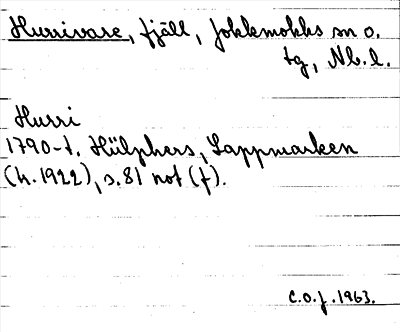 Hurrivare, fjäll, Jokkmokks sn o.
tg, Nb. l.
Hurri
1790-t. Hülphers, Lappmarken
(h. 1922), s. 81 not (f).
C.O.J. 1963.